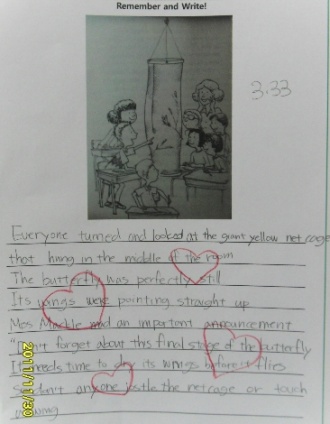 Remember and Write!
3.33
Everyone turned and looked at the giant yellow net cage
that hung in the middle of the room
The butterfly was perfectly still
Its wings were pointing straight up
Mrs. had an important announcement
"Don't forget about this final stage of the butterfly
It needs time to dry its wings before it flies
So don't anyone jostle the net cage or touch
wing
2011/11/30